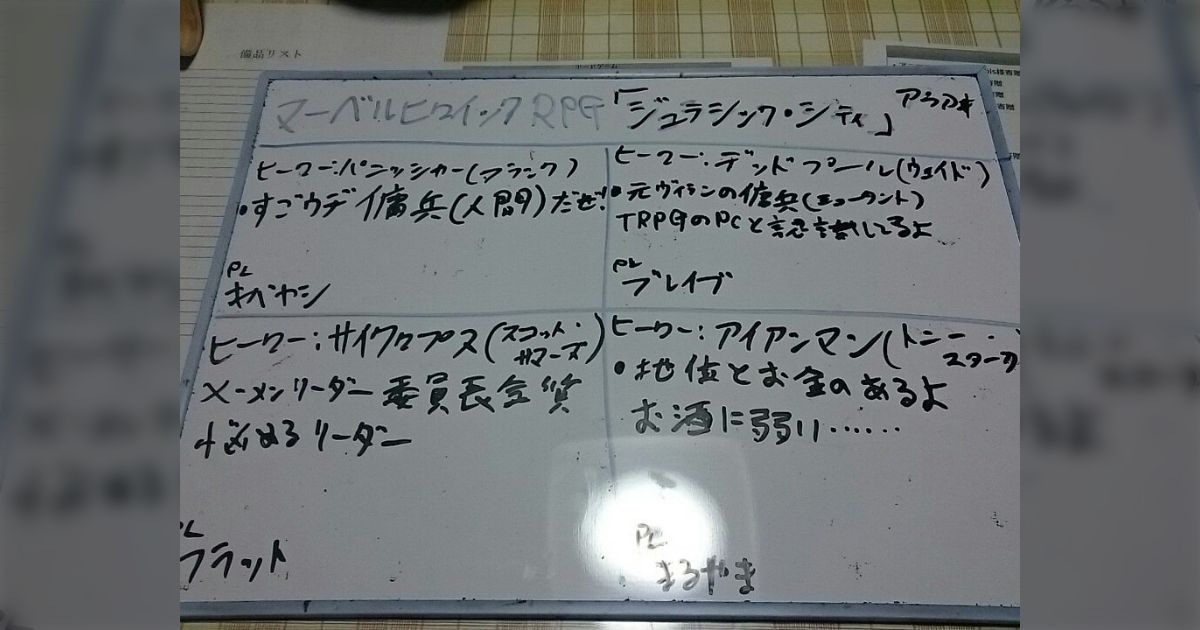 備品リスト
マーベルヒロイックRPG「ジュラシック・シティ」
ヒーロー:パニッシャー(フランク)
・すごウデ傭兵(人間)だぜ!
PL
ヒーロー:デッドプール(ウェイド)
・元ヴィランの傭兵(ミュータント)
TRPGのPCと認識してるよ
PL
ブレイブ
ヒーロー:サイクロプス(スコット・サマーズ)
X-メンリーダー委員長気質
悩めるリーダー
PL
フラット
ヒーロー:アイアンマン(トニー・スターク)
・地位とお金のあるよ
お酒に弱い……
PL
まるやま